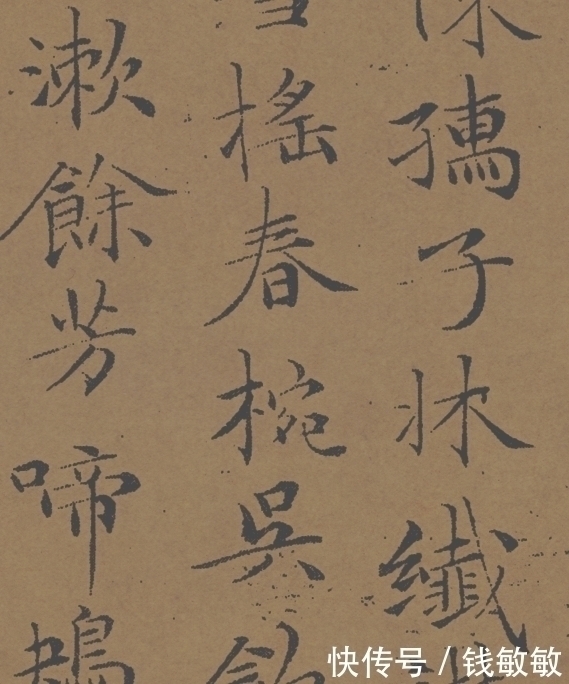 子牀纖
搖春椀吳
漱餘芳啼
快传号 / 钱敏敏